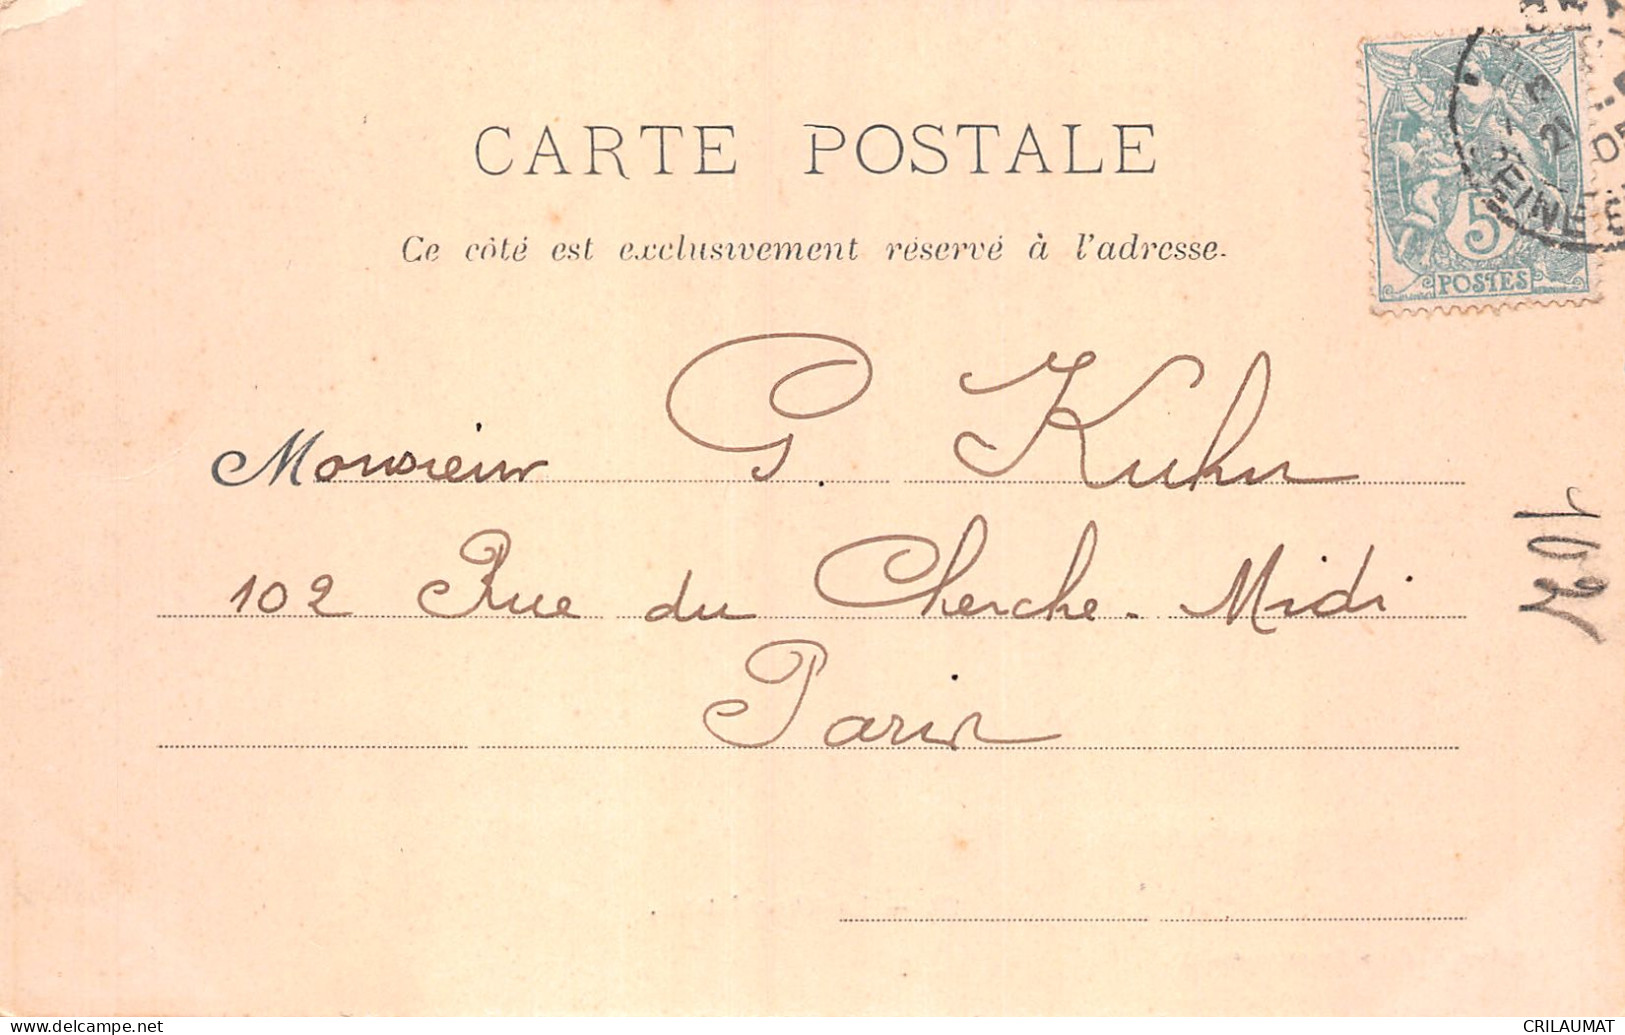 CARTE POSTALE
Ce côté est exclusivement réservé à l'adresse.
5
POSTES
21
05
SEINE
Monsieur G. Kuhn
102 Rue du Cherche-Midi
Paris
www.delcampe.net
CRILAUMAT